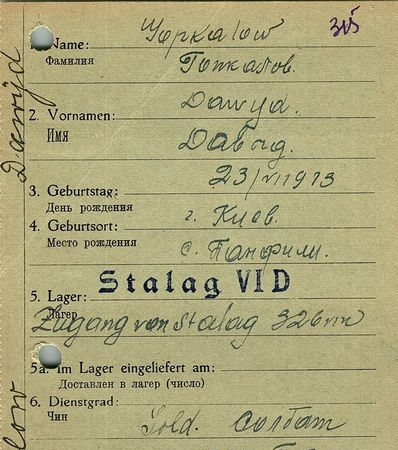 315
1. Name:
Фамилия
2. Vornamen: Dawyd.
Имя
3. Geburtstag: 23/VI 1913
День рождения
4. Geburtsort: г. Киев.
Место рождения с. Панфили.
Stalag VI D
5. Lager:
Лагерь
Zugang von Stalag 326
5a. Im Lager eingeliefert am:
Доставлен в лагерь (число)
6. Dienstgrad:
Чин
Sold. Солдат
Dawyd
low